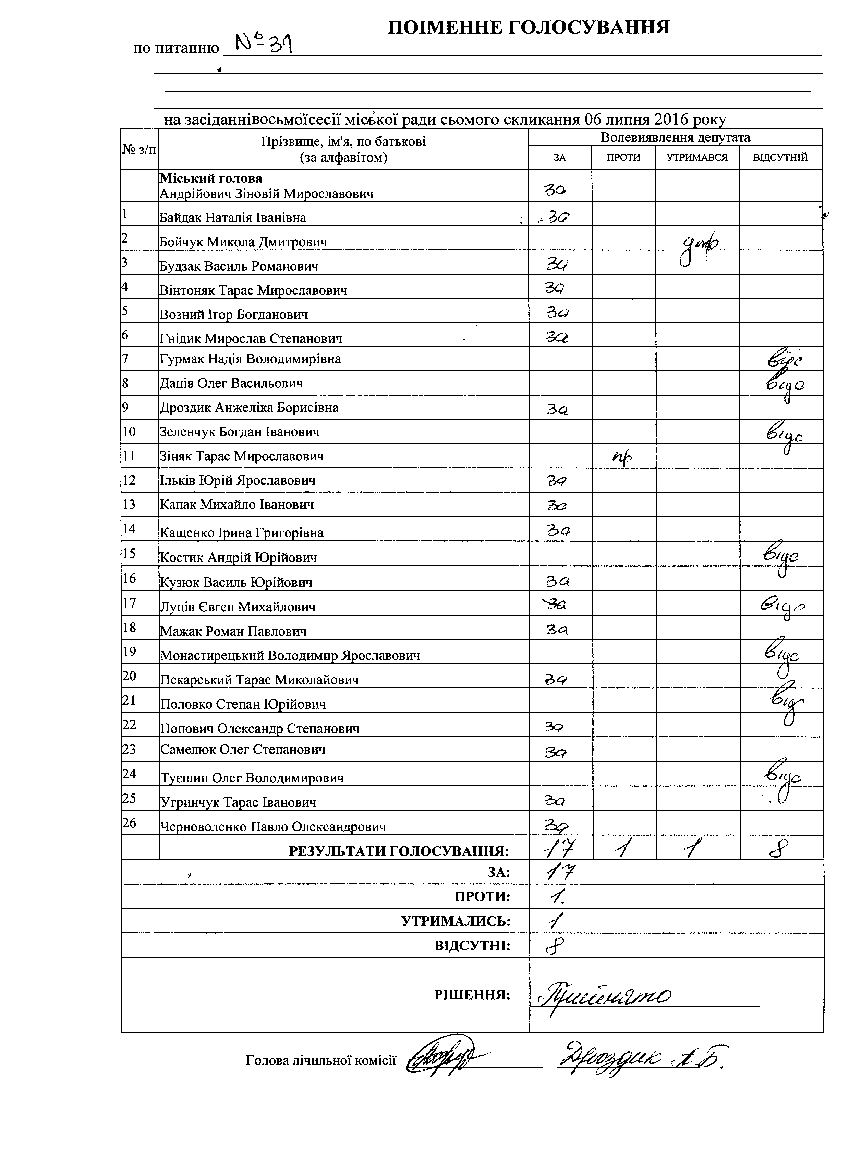 ПОІМЕННЕ ГОЛОСУВАННЯ
по питанню № 31
на засіданнівосьмоїсесії міської ради сьомого скликання 06 липня 2016 року
№ з/п Прізвище, ім'я, по батькові (за алфавітом) Волевиявлення депутата
ЗА ПРОТИ УТРИМАВСЯ ВІДСУТНІЙ
Міський голова
Андрійович Зіновій Мирославович за
1 Байдак Наталія Іванівна за
2 Бойчук Микола Дмитрович утр
3 Будзак Василь Романович за
4 Вінтоняк Тарас Мирославович за
5 Возний Ігор Богданович за
6 Гнідик Мирослав Степанович за
7 Гурмак Надія Володимирівна відс
8 Даців Олег Васильович відс
9 Дроздик Анжеліка Борисівна за
10 Зеленчук Богдан Іванович відс
11 Зіняк Тарас Мирославович пр
12 Ільків Юрій Ярославович за
13 Капак Михайло Іванович за
14 Кащенко Ірина Григорівна за
15 Костик Андрій Юрійович відс
16 Кузюк Василь Юрійович за
17 Луців Євген Михайлович за відс
18 Мажак Роман Павлович за
19 Монастирецький Володимир Ярославович відс
20 Пекарський Тарас Миколайович за
21 Половко Степан Юрійович від
22 Попович Олександр Степанович за
23 Самелюк Олег Степанович за
24 Туєшин Олег Володимирович відс
25 Угринчук Тарас Іванович за
26 Черноволенко Павло Олександрович за
РЕЗУЛЬТАТИ ГОЛОСУВАННЯ: 17 1 1 8
ЗА: 17
ПРОТИ: 1
УТРИМАЛИСЬ: 1
ВІДСУТНІ: 8
РІШЕННЯ: Прийнято
Голова лічильної комісії Дроздик А.Б.